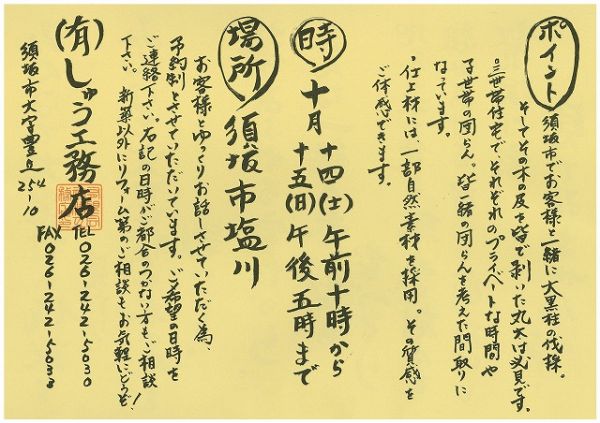 ポイント
須坂市でお客様と一緒に大黒柱の伐採。
そしてその木の皮を皆で剥いた丸太は必見です。
○三世帯住宅で、それぞれのプライベートな時間や
子世帯の団らん。皆一緒の団らんを考えた間取りに
なっています。
・仕上材には、一部自然素材を採用。その質感を
ご体感できます。
時
十月
十四(土)午前十時から
十五(日)午後五時まで
場所
須坂市塩川
お客様とゆっくりお話しさせていただく為、
予約制とさせていただいています。ご希望の日時を
ご連絡下さい。右記の日時がご都合のつかない方もご相談
下さい。新築以外にリフォーム等のご相談もお気軽にどうぞ!
(有)しゅう工務店
TEL 026-242-5030
FAX 026-242-5033
須坂市大字豊丘
254-10